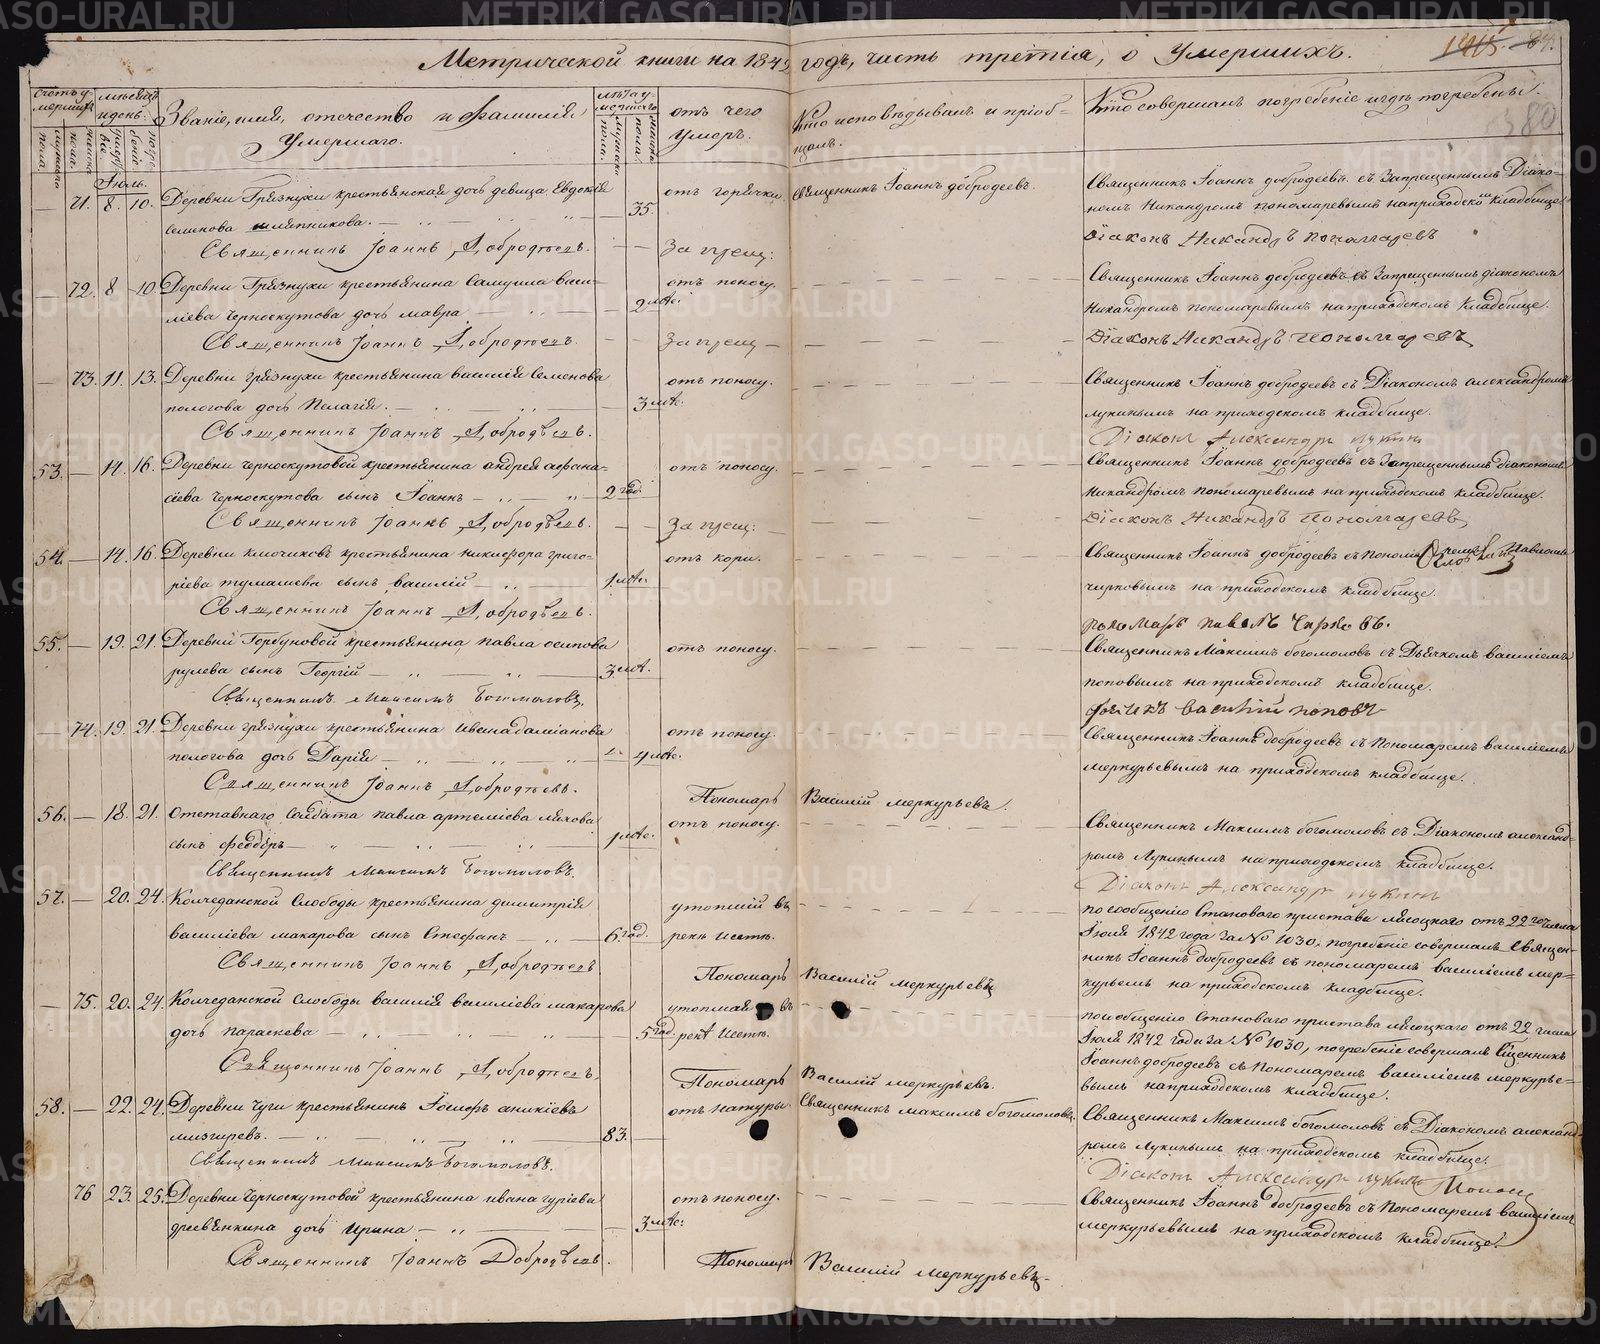 Метрической книги на 1842 годъ, часть третія, о Умершихъ.
1405 84.
380
Счетъ умершихъ
мѣсяцъ и день.
Званіе, имя, отечество и фамилія Умершаго.
лѣта умершаго
отъ чего Умеръ.
Кто исповѣдывалъ и пріобщалъ.
Кто совершалъ погребеніе и гдѣ погребены.
Іюль.
71. 8. 10. Деревни Грязнухи крестьянская дочь девица Евдокія 35. отъ горячки Священникъ Іоаннъ добродеевъ. Священникъ Іоаннъ добродеевъ съ Запрещеннымъ Діако-
Семенова шляпникова. номъ Никандромъ пономаревымъ на приходскомъ кладбище
Священникъ Іоаннъ Добродѣевъ. За прещ: Діаконъ Никандръ Пономаревъ
72. 8 10 Деревни Грязнухи крестьянина Самуила васи- отъ поносу. Священникъ Іоаннъ добродеевъ съ Запрещеннымъ діакономъ
ліева Черноскутова дочь мавра 2 мѣс: Никандромъ пономаревымъ на приходскомъ Кладбище.
Священникъ Іоаннъ Добродѣевъ. За прещ Діаконъ Никандръ Пономаревъ
73. 11. 13. Деревни грязнухи крестьянина василія Семенова отъ поносу. Священникъ Іоаннъ добродеевъ съ Діакономъ александромъ
пологова дочь Пелагія. 3 мѣс. лукинымъ на приходскомъ кладбище.
Священникъ Іоаннъ Добродѣевъ. Діаконъ Александръ лукинъ
53. 14. 16. Деревни черноскутовой крестьянина андрея афана- отъ поносу. Священникъ Іоаннъ добродеевъ съ Запрещеннымъ діакономъ
сіева Черноскутова сынъ Іоаннъ 2 год. Никандромъ пономаревымъ на приходскомъ кладбище.
Священникъ Іоаннъ Добродѣевъ. За прещ: Діаконъ Никандръ Пономаревъ
54. 14. 16 Деревни ключиковъ крестьянина никифора григо- отъ кори. Священникъ Іоаннъ добродеевъ съ Павломъ
ріева тумашева сынъ василій 1 мѣс. чирковымъ на приходскомъ кладбище.
Священникъ Іоаннъ Добродѣевъ. пономарь павелъ Чирковъ.
55. 19. 21. Деревни Горбуновой крестьянина павла осипова отъ поносу. Священникъ Максимъ богомоловъ съ Дьячкомъ василіемъ
рулева сынъ Георгій 3 мѣс. поповымъ на приходскомъ кладбище.
Священникъ Максимъ Богомоловъ. василій поповъ
74. 19. 21. Деревни грязнухи крестьянина ивана даміанова отъ поносу. Священникъ Іоаннъ добродеевъ съ Пономаремъ василіемъ
пологова дочь Дарія 4 мѣс. меркурьевымъ на приходскомъ кладбище.
Священникъ Іоаннъ Добродѣевъ. Пономарь Василій меркурьевъ.
56. 18. 21. Отставнаго Солдата павла артеміева ляхова отъ поносу. Священникъ Максимъ богомоловъ съ Діакономъ александ-
сынъ феодоръ мѣс. ромъ Лукинымъ на приходскомъ кладбище.
Священникъ Максимъ Богомоловъ. Діаконъ Александръ лукинъ
57. 20. 24. Колчеданской Слободы крестьянина димитрія утопшій въ по сообщенію Становаго пристава лясоцкаго отъ 22го числа
василіева макарова сынъ Стефанъ 6 год. реки исети. Іюля 1842 года за № 1030, погребеніе совершалъ Священ-
Священникъ Іоаннъ Добродѣевъ Пономарь Василій меркурьевъ никъ Іоаннъ добродеевъ съ пономаремъ василіемъ мер-
курьевъ на приходскомъ кладбище.
75. 20. 24. Колчеданской Слободы василія василіева макарова утопшая въ по сообщенію Становаго пристава лясоцкаго отъ 22 числа
дочь параскева 5 год. рекѣ Исети. Іюля 1842 года за № 1030, погребеніе совершалъ Священникъ
Священникъ Іоаннъ Добродѣевъ. Пономарь Василій меркурьевъ. Іоаннъ добродеевъ съ Пономаремъ василіемъ меркурье-
вымъ на приходскомъ кладбище.
58. 22. 24. Деревни Чуги крестьянинъ Іосифъ аникіевъ отъ натуры. Священникъ максимъ богомоловъ. Священникъ Максимъ богомоловъ съ Діакономъ александ-
мизгиревъ. 83. ромъ Лукинымъ на приходскомъ кладбище.
Священникъ Максимъ Богомоловъ. Діаконъ Александръ лукинъ
76 23. 25. Деревни Черноскутовой крестьянина ивана гуріева отъ поносу. Священникъ Іоаннъ добродеевъ съ Пономаремъ василіемъ
древянкина дочь ирина 3 мѣс: меркурьевымъ на приходскомъ кладбище.
Священникъ Іоаннъ Добродѣевъ. Пономарь Василій меркурьевъ.
METRIKI.GASO-URAL.RU